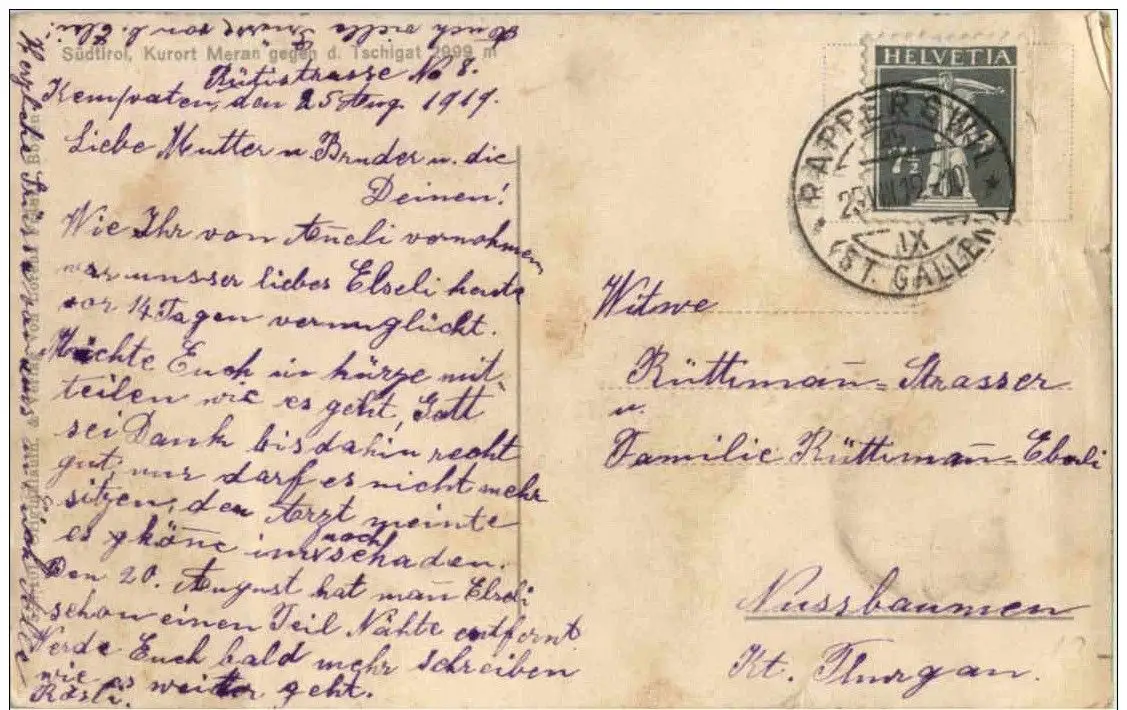 Auch viele Grüsse von b. Elsi!
Südtirol, Kurort Meran gegen d. Tschigat 2999 m
Rütistrasse No 8.
Kempraten, den 25 Aug. 1919.
Liebe Mutter u Bruder u. die
Deinen!
Wie Ihr von Anneli vornohmen
war unsser liebes Elseli heute
vor 14 Tagen verunglückt.
Möchte Euch in kürze mit-
teilen wie es geht, Gott
sei Dank bis dahin recht
gut, nur darf es nicht mehr
sitzen, der Arzt meinte
es köñe im noch schaden.
Den 20. August hat mañ Elseli
schon einen Teil Nähte entfernt.
Werde Euch bald mehr schreiben
wie es weiter geht.
Rösli.
Herzliche Grüsse von uns an Euch alle
HELVETIA
7½
RAPPERSWIL
25.VIII.19
IX
(ST. GALLEN)
Witwe
Rüttimañ-Strasser
u.
Familie Rüttimañ-Eberli
Nussbaumen
Kt. Thurgau.